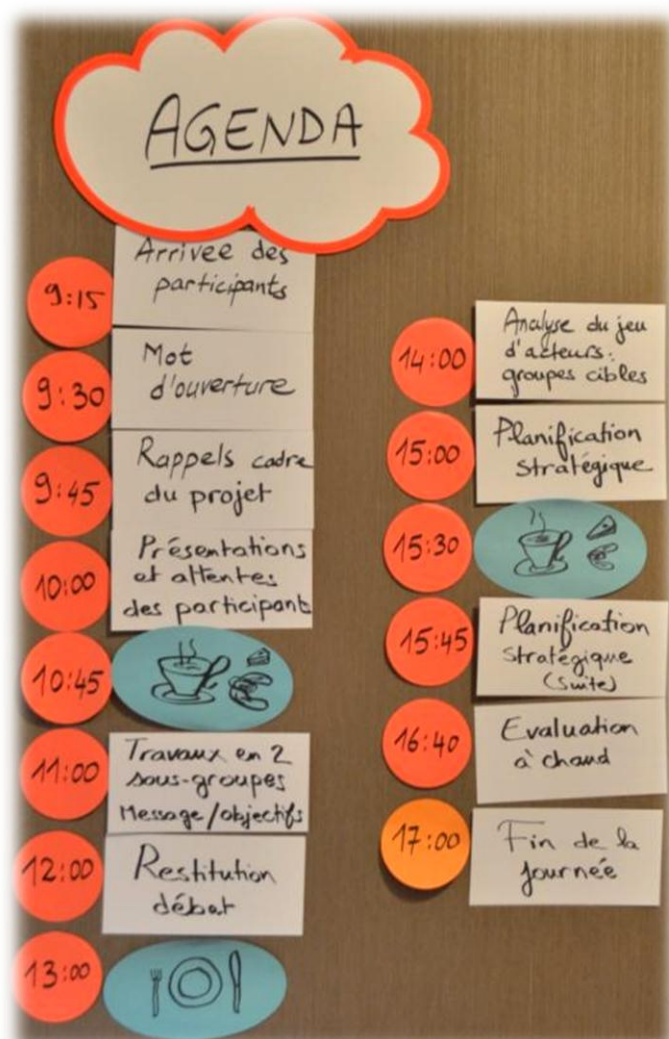 AGENDA
9:15
Arrivee des
participants
9:30
Mot
d'ouverture
9:45
Rappels cadre
du projet
10:00
Présentations
et attentes
des participants
10:45
11:00
Travaux en 2
sous-groupes
Message/objectifs
12:00
Restitution
débat
13:00
14:00
Analyse du jeu
d'acteurs:
groupes cibles
15:00
Planification
stratégique
15:30
15:45
Planification
stratégique
(suite)
16:40
Evaluation
à chaud
17:00
Fin de la
journée